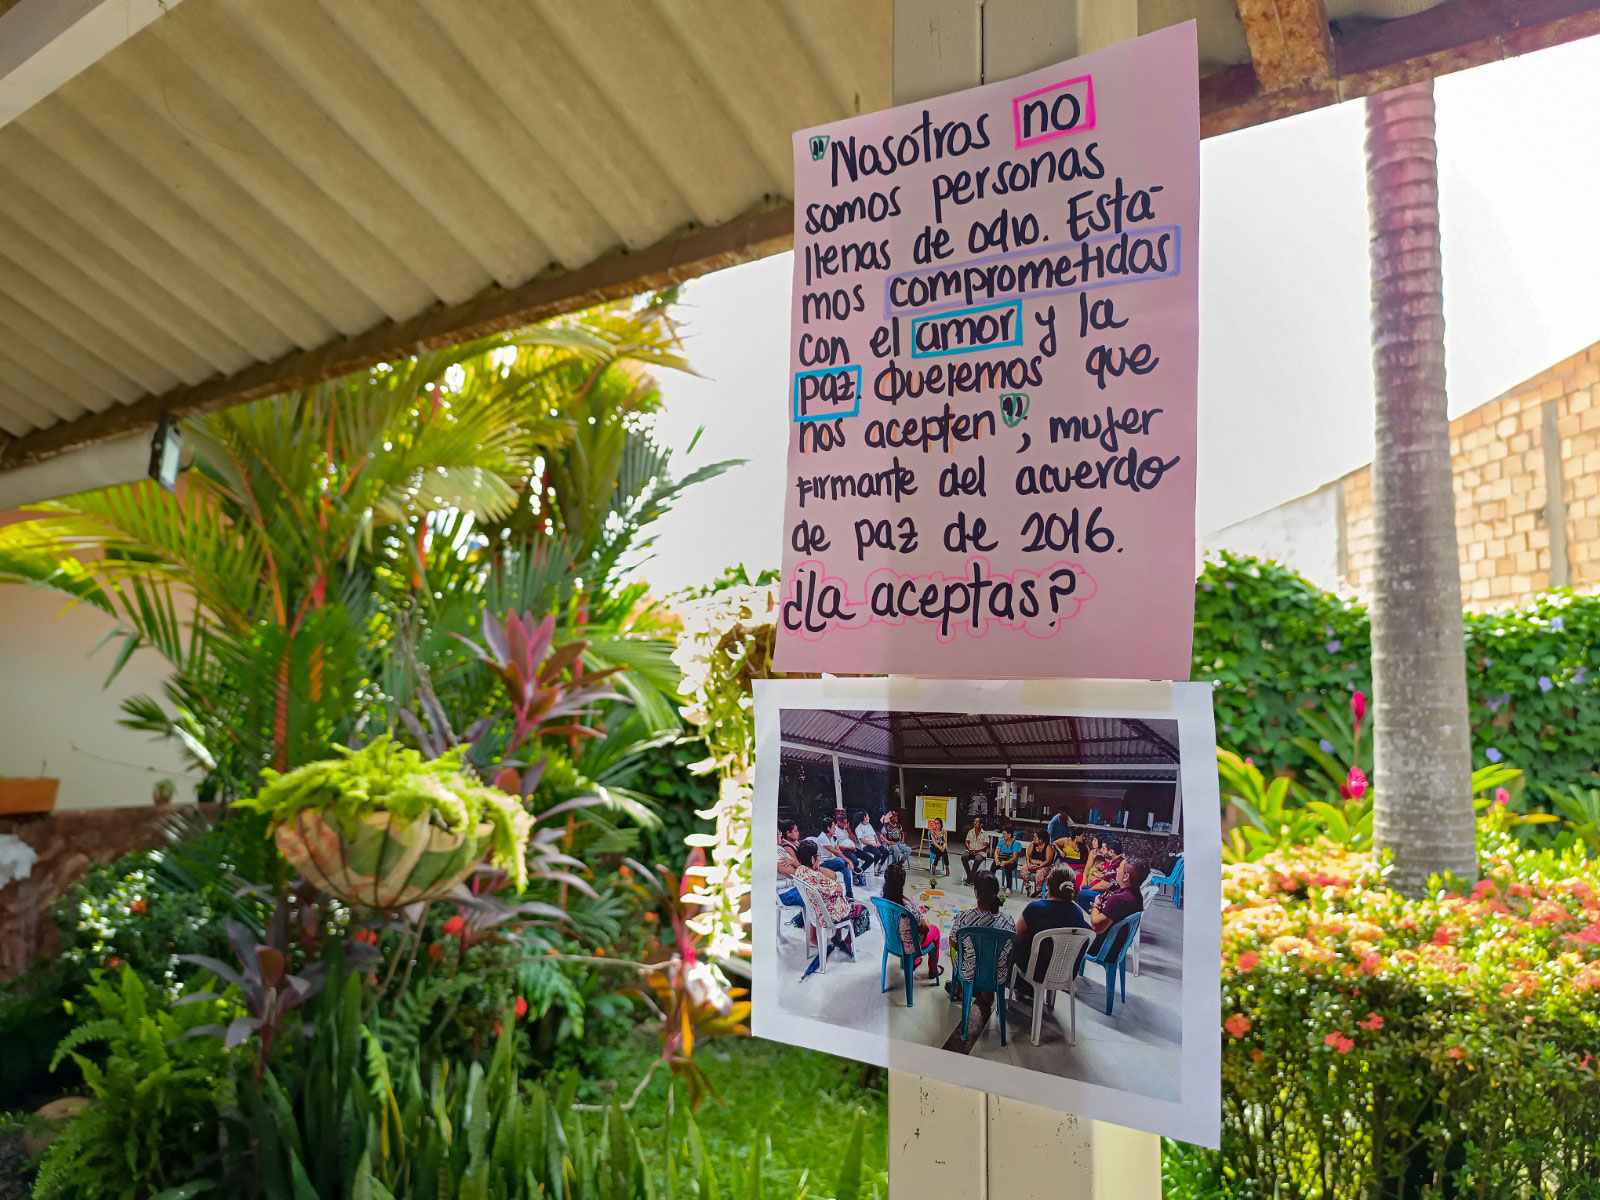 "Nosotros no
somos personas
llenas de odio. Esta-
mos comprometidos
con el amor y la
paz. Queremos que
nos acepten", mujer
firmante del acuerdo
de paz de 2016.
¿La aceptas?